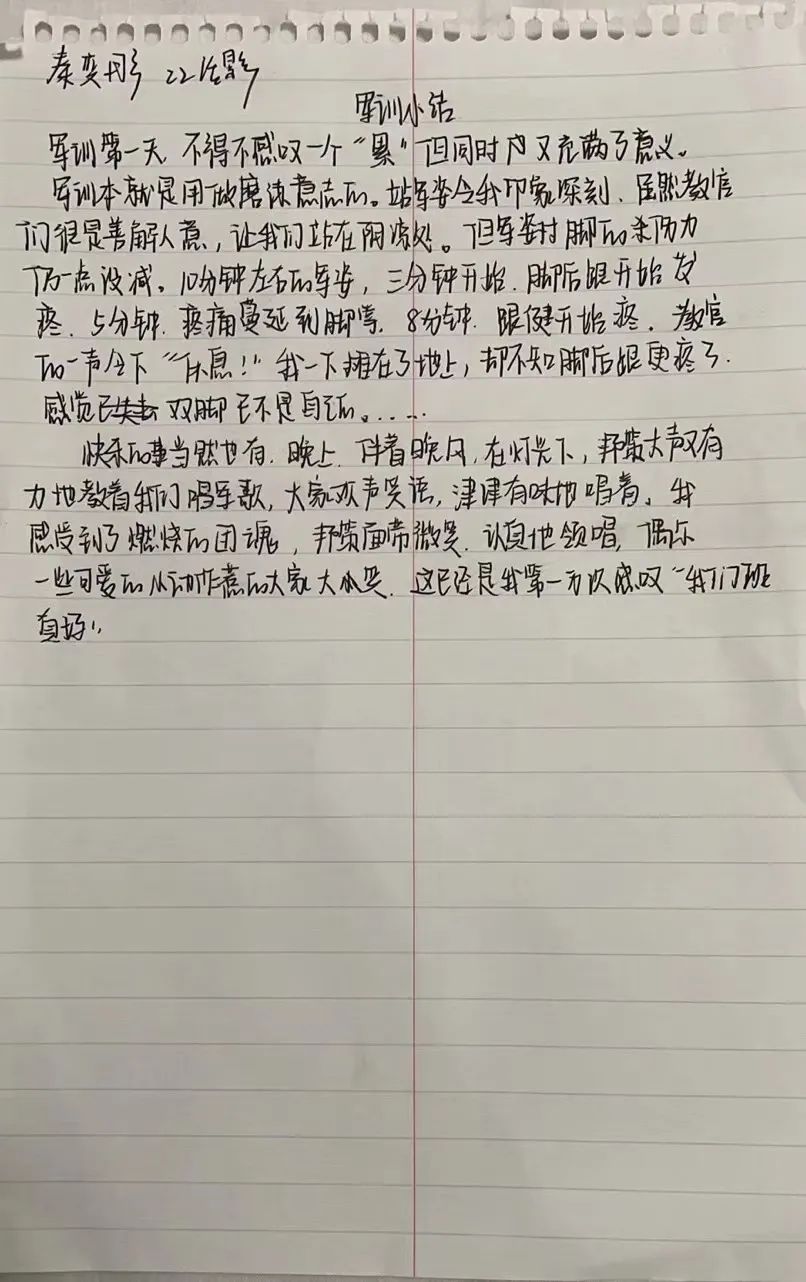 秦奕彤 22绘影
军训小结
军训第一天 不得不感叹一个“累”但同时内又充满了意义。
军训本就是用做磨练意志的。站军姿令我印象深刻、虽然教官
们很是善解人意，让我们站在阴凉处。但军姿对脚的杀伤力
仍一点没减。10分钟左右的军姿，三分钟开始.脚后跟开始发
疼.5分钟.疼痛蔓延到脚掌.8分钟.腿便开始疼.教官
的一声令下“休息！”我一下摊在了地上，却不知脚后跟更疼了.
感觉已失去 双脚已不是自己的。……
快乐的事当然也有.晚上.伴着晚风.在灯光下，邦策大声又有
力地教着我们唱军歌，大家欢声笑语，津津有味地唱着。我
感受到了燃烧的团魂，邦策面带微笑.认真地领唱，偶尔
一些可爱的小动作惹的大家大小笑.这已经是我第一万次感叹“我们班
真好”